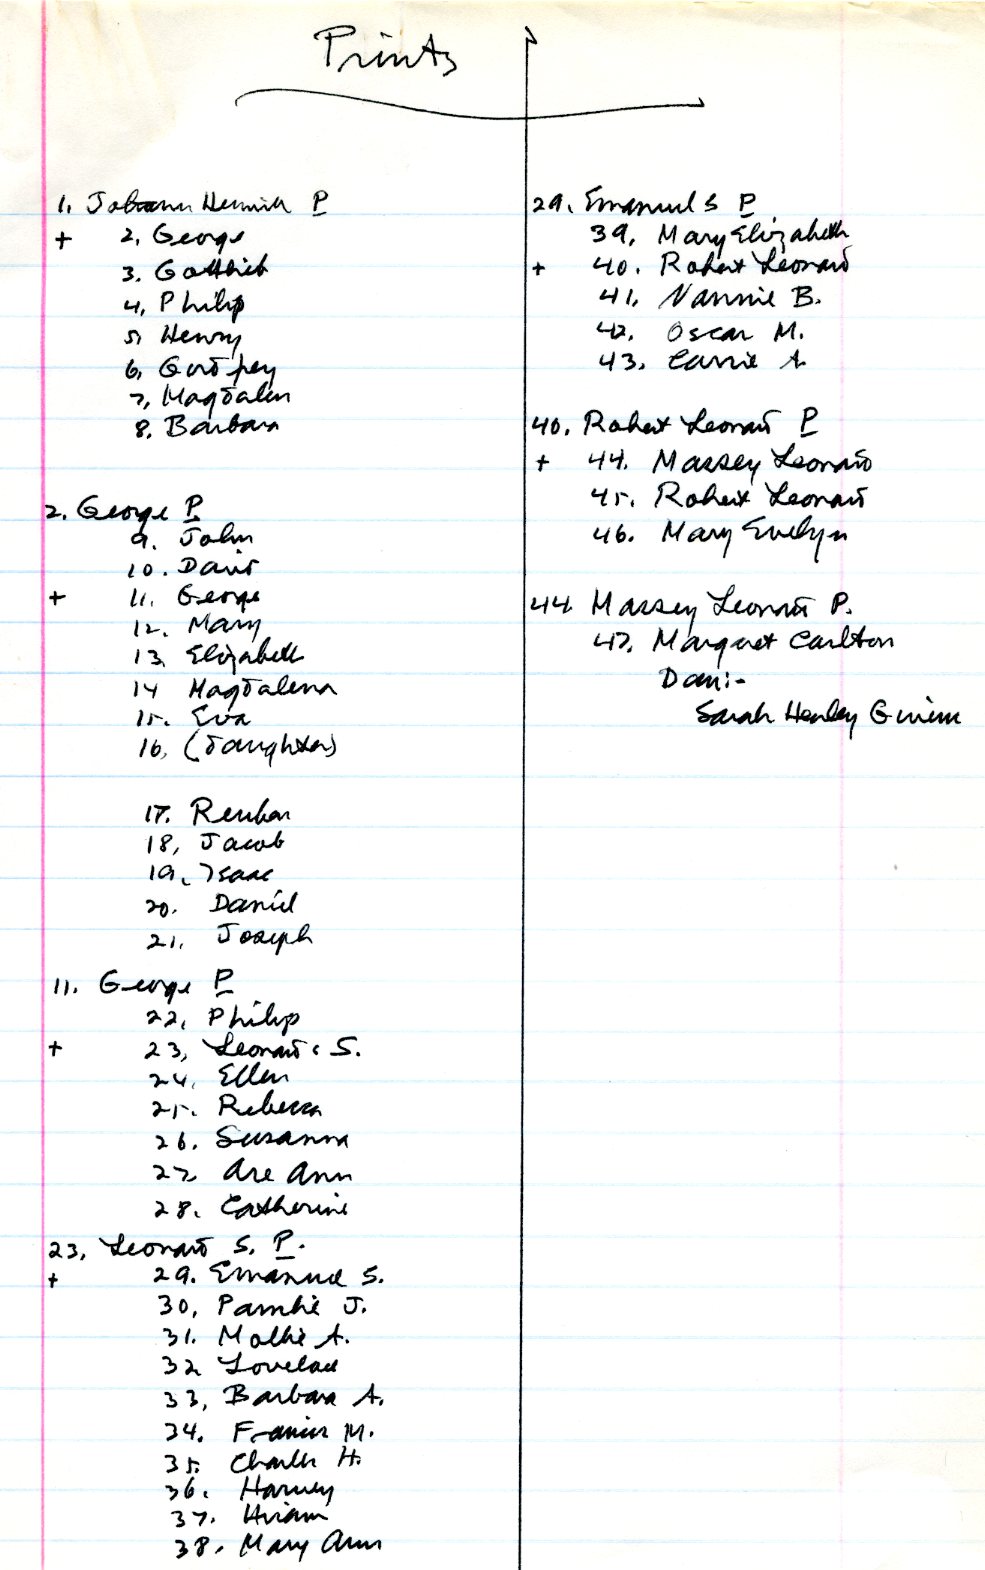 Prints
1. Johann Henrich P
+ 2. George
3. Gottlieb
4. Philip
5. Henry
6. Godfrey
7. Magdalen
8. Barbara
2. George P
9. John
10. David
+ 11. George
12. Mary
13. Elizabeth
14 Magdalena
15. Eva
16. (daughter)
17. Reuben
18. Jacob
19. Isaac
20. Daniel
21. Joseph
11. George P
22. Philip
+ 23. Leonard S.
24. Ellen
25. Rebecca
26. Susanna
27 Are Ann
28. Catherine
23. Leonard S. P.
+ 29. Emanuel S.
30. J.
31. Mollie A.
32 Lovelace
33. Barbara A.
34. Francis M.
35. Charles H.
36. Harvey
37. Hiram
38. Mary Ann
29. Emanuel S P
39. Mary Elizabeth
+ 40. Robert Leonard
41. Nannie B.
42. Oscar M.
43. Carrie A
40. Robert Leonard P
+ 44. Massey Leonard
45. Robert Leonard
46. Mary Evelyn
44. Massey Leonard P.
47. Margaret Carlton
Dau:-
Sarah Henley